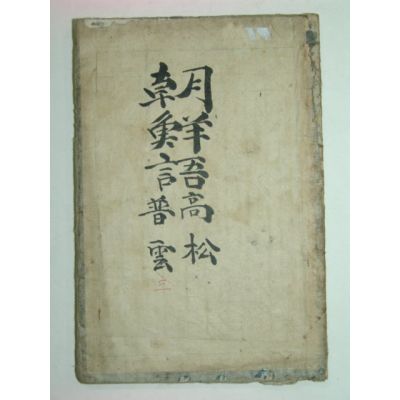 朝鮮語
高松
普雲